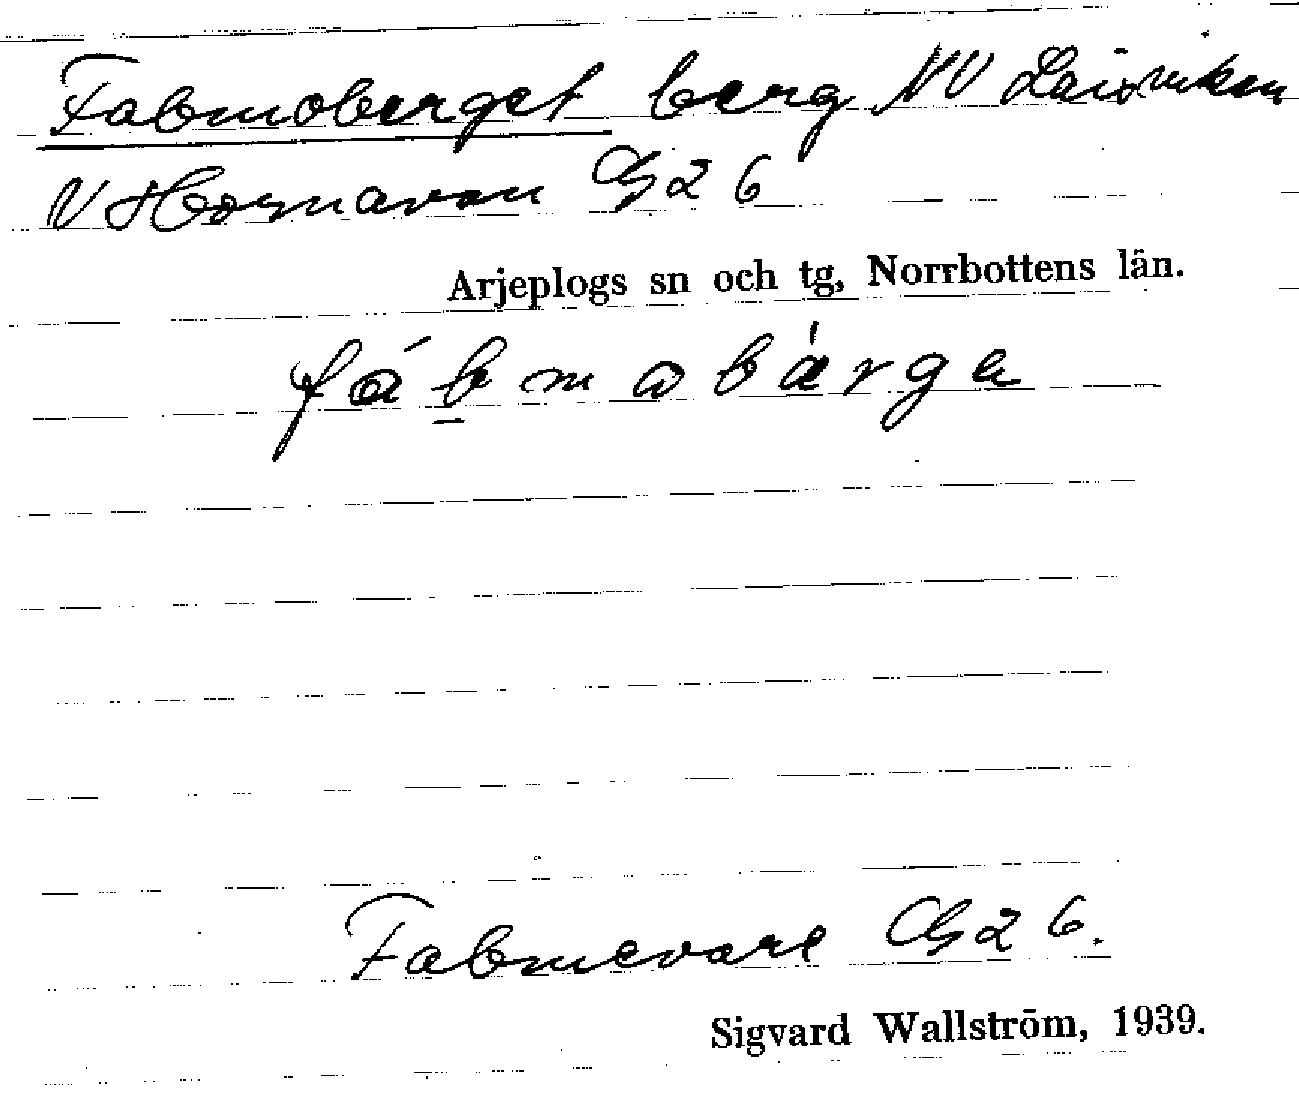 Fabmoberget berg NV Laisviken
V Hornavan Gb 26
Arjeplogs sn och tg, Norrbottens län.
fábmobárga
Fabmevare Gb 26.
Sigvard Wallström, 1939.